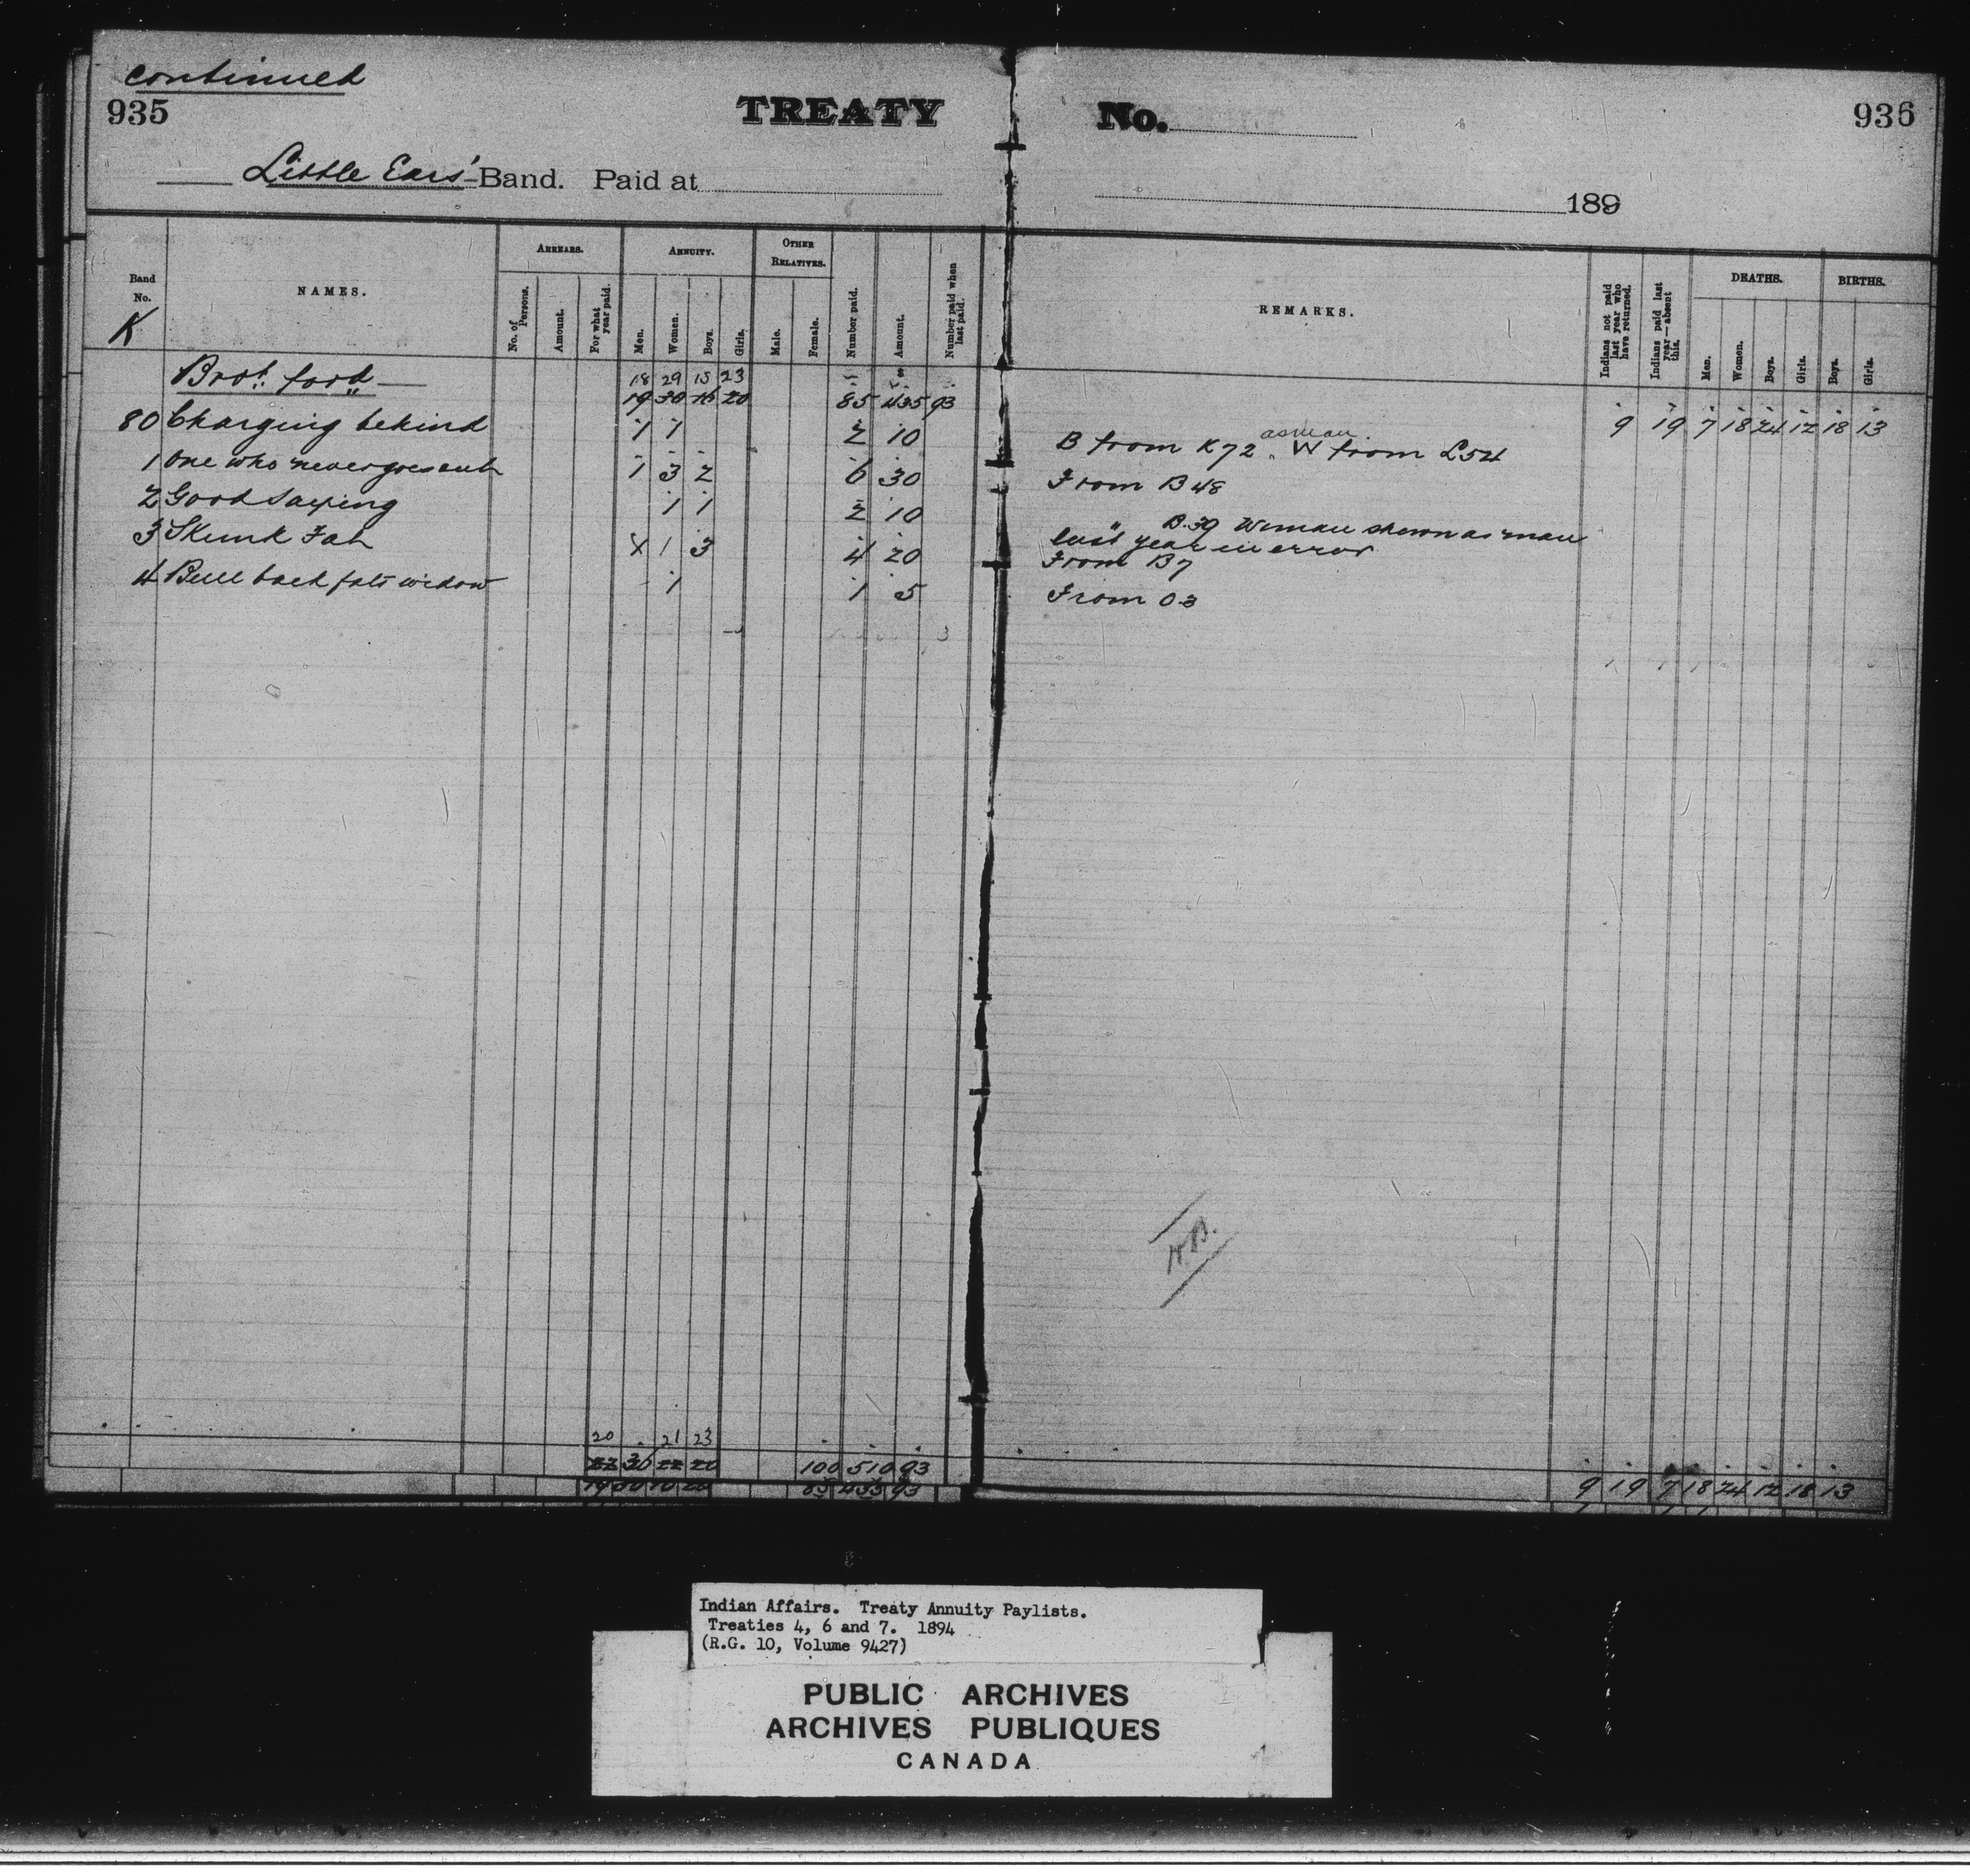 continued
935 TREATY No. 936
Little Ears' Band. Paid at 189
Band No. K
NAMES.
ARREARS. No. of Persons. Amount. For what year paid.
ANNUITY. Men. Women. Boys. Girls.
OTHER RELATIVES. Male. Female.
Number paid. Amount. Number paid when last paid.
REMARKS.
Indians not paid last year who have returned.
Indians paid last year—absent this.
DEATHS. Men. Women. Boys. Girls.
BIRTHS. Boys. Girls.
Brot. ford 18 29 15 23
19 30 16 20 85 435 93 9 19 7 18 24 12 18 13
80 Charging behind 1 1 2 10 B from K72 as man. W from L54
1 One who never goes out 1 3 2 6 30 From B48
2 Good Saying 1 1 2 10 " B.39 Woman shewn as man last year in error
3 Skunk Fat X 1 3 4 20 From B7
4 Bull back fats widow 1 1 5 From O3
H.B.
20 21 23
36 22 20 100 510 93 9 19 7 18 24 12 18 13
85 435 93
Indian Affairs. Treaty Annuity Paylists.
Treaties 4, 6 and 7. 1894
(R.G. 10, Volume 9427)
PUBLIC ARCHIVES
ARCHIVES PUBLIQUES
CANADA